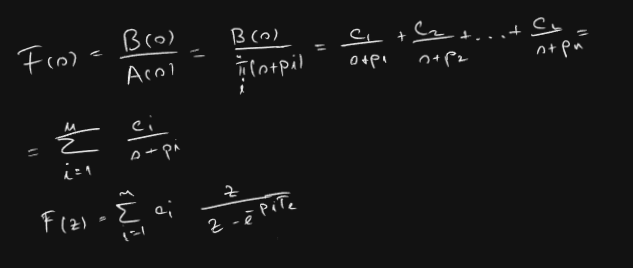 F(s) = B(s)/A(s) = B(s)/π_i(s+pi) = C1/s+p1 + C2/s+p2 + ... + Cn/s+pn =
= Σ_{i=1}^{n} ci/s+pi
F(z) = Σ_{i=1}^{n} ci z/z - e^-piTc